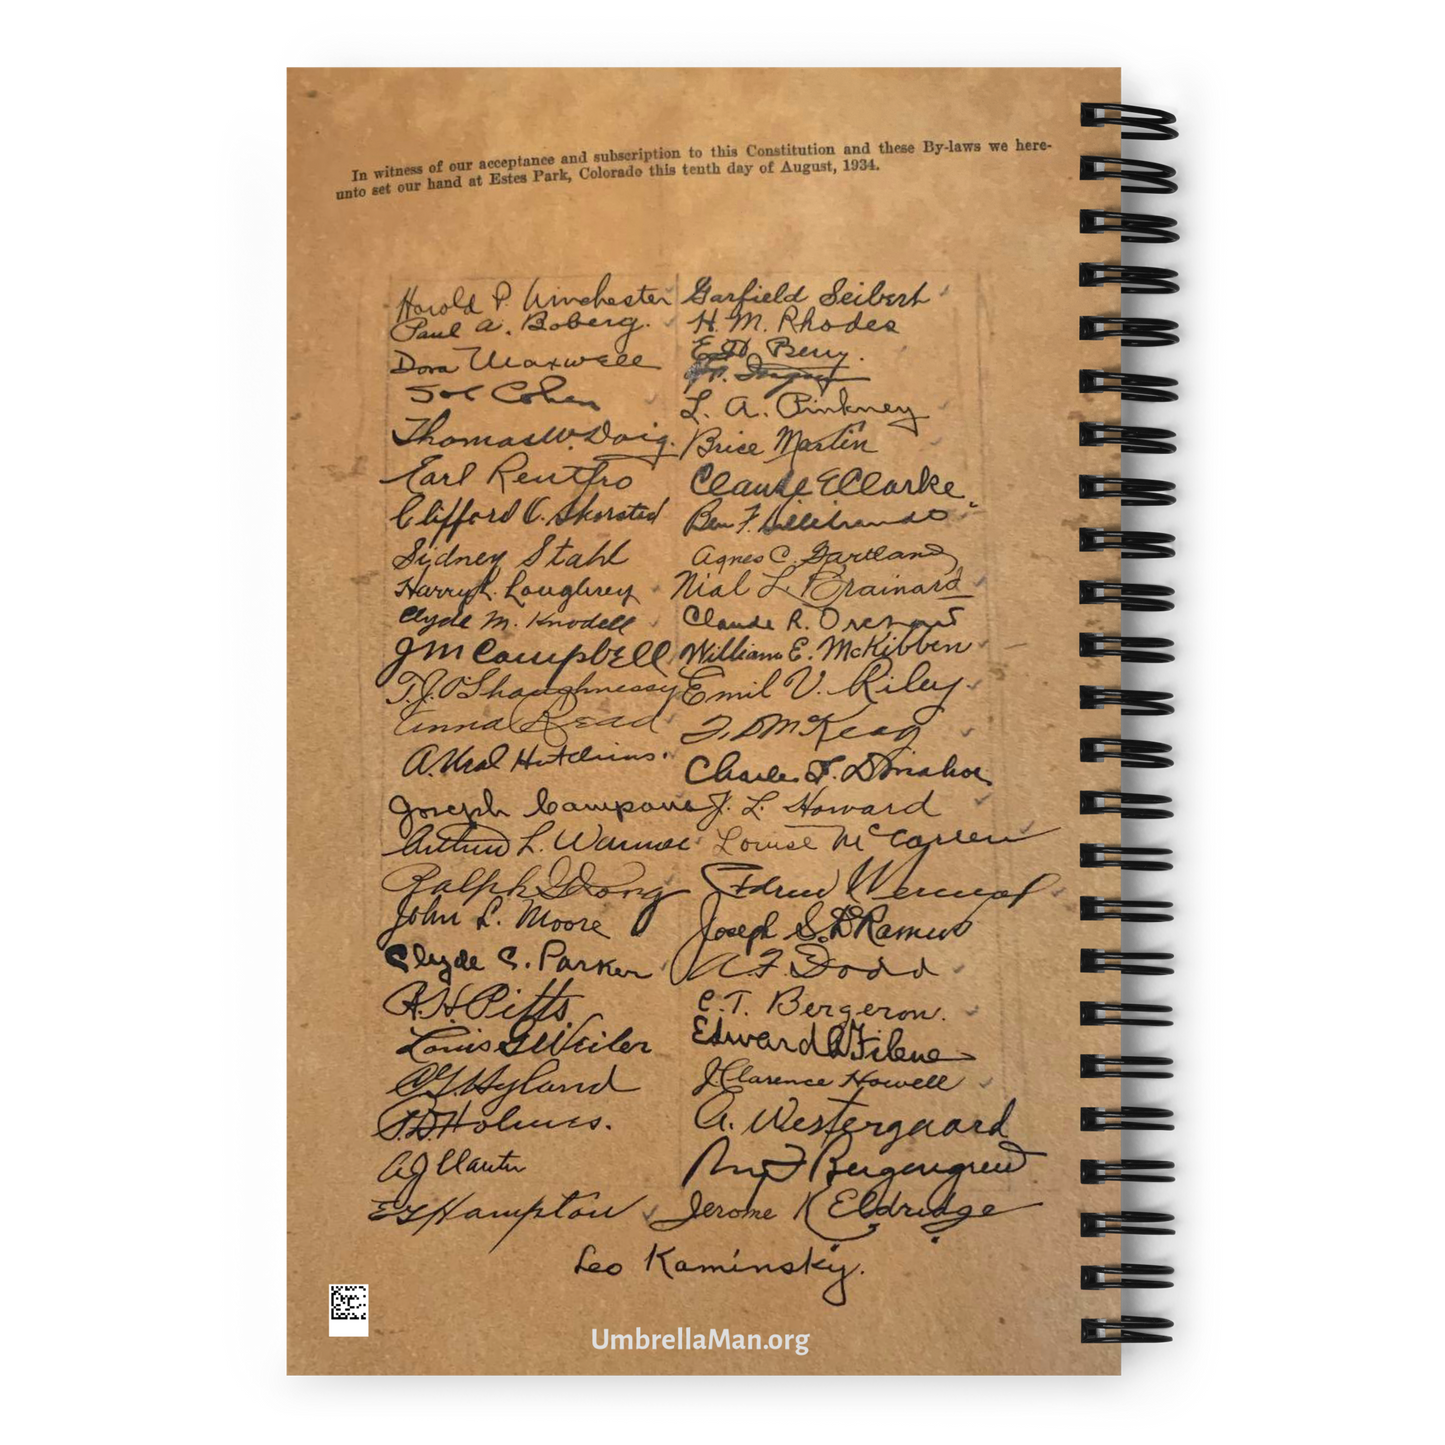 In witness of our acceptance and subscription to this Constitution and these By-laws we here-
unto set our hand at Estes Park, Colorado this tenth day of August, 1934.
Harold P. Winchester
Paul A. Boberg.
Dora Maxwell
Sol Cohen
Thomas W. Doig.
Earl Rentfro
Clifford O. Skorstad
Sidney Stahl
Harry L. Loughrey
Clyde M. Knodell
J M Campbell
T. J. O'Shaughnessy
Anna Read
A. Ural Hutchins.
Joseph Campana
Arthur L. Warmer
Ralph G Long
John L. Moore
Clyde C. Parker
R. H. Pitts
Louis G Weiler
Hyland
Holmes.
E L Hampton
Garfield Seibert
H. M. Rhodes
Berry.
L. A. Pinkney
Brice Martin
Claude E Clarke
Ben F. Hillebrandt
Agnes C. Gartland
Nial L. Brainard
Claude R. Orchard
William E. McKibben
Emil V. Riley.
McKeag
Charles F. Donahoe
J. L. Howard
Louise McCarren
Joseph S. DeRamus
A. F. Dodd
C. T. Bergeron.
Edward A Filene
J Clarence Howell
A. Westergaard
Roy F Bergengren
Jerome K Eldridge
Leo Kaminsky.
UmbrellaMan.org